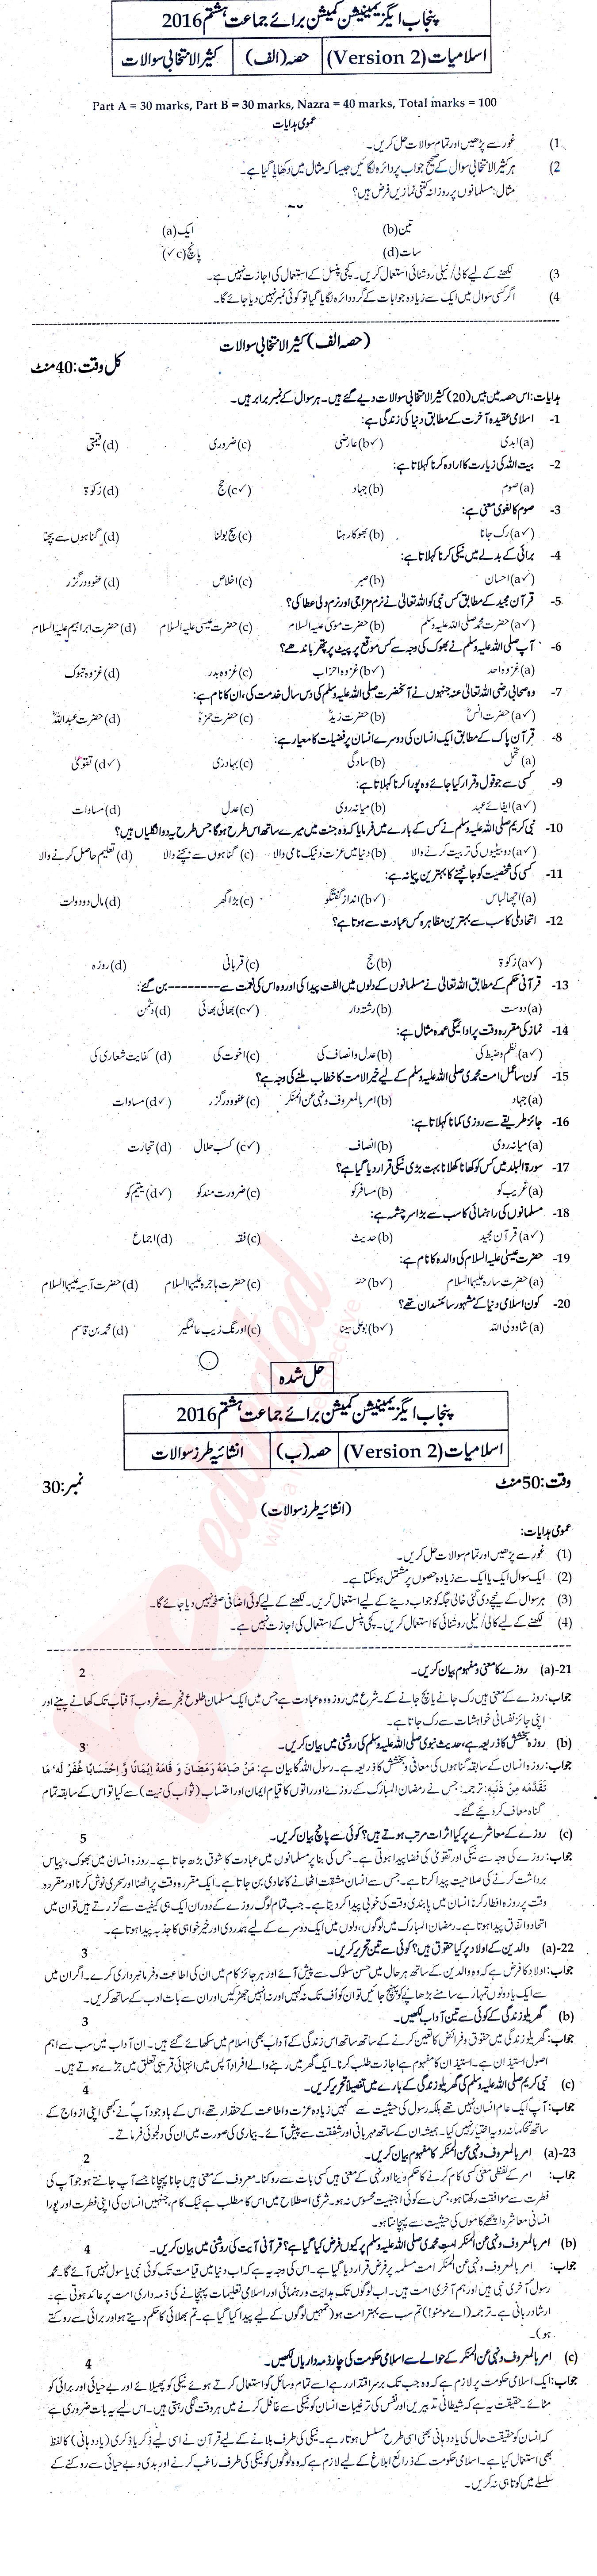 پنجاب ایگزیمینیشن کمیشن برائے جماعت ہشتم 2016
اسلامیات (Version 2) حصہ (الف) کثیرالانتخابی سوالات
Part A = 30 marks, Part B = 30 marks, Nazra = 40 marks, Total marks = 100
عمومی ہدایات
(1 غور سے پڑھیں اور تمام سوالات حل کریں۔
(2 ہر کثیرالانتخابی سوال کے صحیح جواب پر دائرہ لگائیں جیسا کہ مثال میں دکھایا گیا ہے۔
مثال: مسلمانوں پر روزانہ کتنی نمازیں فرض ہیں؟
(a) ایک (b) تین
(c✓) پانچ (d) سات
(3 لکھنے کے لیے کالی/ نیلی روشنائی استعمال کریں۔ کچی پنسل کے استعمال کی اجازت نہیں ہے۔
(4 اگر کسی سوال میں ایک سے زیادہ جوابات کے گرد دائرہ لگایا گیا تو کوئی نمبر نہیں دیا جائے گا۔
(حصہ الف) کثیرالانتخابی سوالات
کل وقت: 40 منٹ
ہدایات: اس حصہ میں بیس (20) کثیرالانتخابی سوالات دیے گئے ہیں۔ ہر سوال کے نمبر برابر ہیں۔
1- اسلامی عقیدہ آخرت کے مطابق دنیا کی زندگی ہے:
(a) ابدی (b✓) عارضی (c) ضروری (d) قیمتی
2- بیت اللہ کی زیارت کا ارادہ کرنا کہلاتا ہے:
(a) صوم (b) جہاد (c✓) حج (d) زکوٰۃ
3- صوم کا لغوی معنی ہے:
(a✓) رک جانا (b) بھوکا رہنا (c) سچ بولنا (d) گناہوں سے بچنا
4- برائی کے بدلے میں نیکی کرنا کہلاتا ہے:
(a✓) احسان (b) صبر (c) اخلاص (d) عفو و درگزر
5- قرآن مجید کے مطابق کس نبی کو اللہ تعالیٰ نے نرم مزاجی اور نرم دلی عطا کی؟
(a✓) حضرت محمد صلی اللہ علیہ وسلم (b) حضرت موسیٰ علیہ السلام (c) حضرت عیسیٰ علیہ السلام (d) حضرت ابراہیم علیہ السلام
6- آپ صلی اللہ علیہ وسلم نے بھوک کی وجہ سے کس موقع پر پیٹ پر پتھر باندھے؟
(a) غزوہ احد (b✓) غزوہ احزاب (c) غزوہ بدر (d) غزوہ تبوک
7- وہ صحابی رضی اللہ تعالیٰ عنہ جنہوں نے آنحضرت صلی اللہ علیہ وسلم کی دس سال خدمت کی، ان کا نام ہے:
(a✓) حضرت انسؓ (b) حضرت زیدؓ (c) حضرت حمزہؓ (d) حضرت عبداللہؓ
8- قرآن پاک کے مطابق ایک انسان کی دوسرے انسان پر فضیلت کا معیار ہے:
(a) تحمل (b) سادگی (c) بہادری (d✓) تقویٰ
9- کسی سے جو قول و قرار کیا جائے وہ پورا کرنا کہلاتا ہے:
(a✓) ایفائے عہد (b) میانہ روی (c) عدل (d) مساوات
10- نبی کریم صلی اللہ علیہ وسلم نے کس کے بارے میں فرمایا کہ وہ جنت میں میرے ساتھ اس طرح ہوگا جس طرح یہ دو انگلیاں ہیں؟
(a✓) دو بیٹیوں کی تربیت کرنے والا (b) دنیا میں عزت و نیک نامی والا (c) گناہوں سے بچنے والا (d) تعلیم حاصل کرنے والا
11- کسی کی شخصیت کو جانچنے کا بہترین پیمانہ ہے:
(a) اچھا لباس (b✓) انداز گفتگو (c) بڑا گھر (d) مال و دولت
12- اتحاد ملی کا سب سے بہترین مظاہرہ کس عبادت سے ہوتا ہے؟
(a✓) زکوٰۃ (b) حج (c) قربانی (d) روزہ
13- قرآنی حکم کے مطابق اللہ تعالیٰ نے مسلمانوں کے دلوں میں الفت پیدا کی اور وہ اس کی نعمت سے -------- بن گئے:
(a) دوست (b) رشتہ دار (c✓) بھائی بھائی (d) دشمن
14- نماز کی مقررہ وقت پر ادائیگی عمدہ مثال ہے:
(a✓) نظم و ضبط کی (b) عدل و انصاف کی (c) اخوت کی (d) کفایت شعاری کی
15- کون سا عمل امت محمدی صلی اللہ علیہ وسلم کے لیے خیر الامت کا خطاب ملنے کی وجہ ہے؟
(a) جہاد (b) امر بالمعروف و نہی عن المنکر (c) عفو و درگزر (d✓) مساوات
16- جائز طریقے سے روزی کمانا کہلاتا ہے:
(a) میانہ روی (b) انصاف (c✓) کسب حلال (d) تجارت
17- سورۃ البلد میں کس کو کھانا کھلانا بہت بڑی نیکی قرار دیا گیا ہے؟
(a) غریب کو (b) مسافر کو (c) ضرورت مند کو (d✓) یتیم کو
18- مسلمانوں کی راہنمائی کا سب سے بڑا سرچشمہ ہے:
(a✓) قرآن مجید (b) حدیث (c) فقہ (d) اجماع
19- حضرت عیسیٰ علیہ السلام کی والدہ کا نام ہے:
(a) حضرت سارہ علیہا السلام (b✓) (c) حضرت ہاجرہ علیہا السلام (d) حضرت آسیہ علیہا السلام
20- کون اسلامی دنیا کے مشہور سائنسدان تھے؟
(a) شاہ ولی اللہ (b✓) بوعلی سینا (c) اورنگ زیب عالمگیر (d) محمد بن قاسم
حل شدہ
پنجاب ایگزیمینیشن کمیشن برائے جماعت ہشتم 2016
اسلامیات (Version 2) حصہ (ب) انشائیہ طرز سوالات
وقت: 50 منٹ نمبر: 30
(انشائیہ طرز سوالات)
عمومی ہدایات:
(1) غور سے پڑھیں اور تمام سوالات حل کریں۔
(2) ایک سوال ایک یا ایک سے زیادہ حصوں پر مشتمل ہو سکتا ہے۔
(3) ہر سوال کے نیچے دی گئی خالی جگہ کو جواب دینے کے لیے استعمال کریں۔ لکھنے کے لیے کوئی اضافی صفحہ نہیں دیا جائے گا۔
(4) لکھنے کے لیے کالی/ نیلی روشنائی کا استعمال کریں۔ کچی پنسل کے استعمال کی اجازت نہیں ہے۔
21-(a) روزے کا معنی و مفہوم بیان کریں۔ 2
جواب: روزے کے معنی ہیں رک جانے یا بچ جانے کے۔ شرع میں روزہ وہ عبادت ہے جس میں ایک مسلمان طلوع فجر سے غروب آفتاب تک کھانے پینے اور
اپنی جائز نفسانی خواہشات سے رک جاتا ہے۔
(b) روزہ بخشش کا ذریعہ ہے، حدیث نبوی صلی اللہ علیہ وسلم کی روشنی میں بیان کریں۔ 3
جواب: روزہ انسان کے سابقہ گناہوں کی معافی و بخشش کا ذریعہ ہے۔ رسول اللہ کا بیان ہے: مَنْ صَامَهُ رَمَضَانَ وَ قَامَهُ اِيْمَانًا وَّ اِحْتِسَابًا غُفِرَ لَهٗ مَا
تَقَدَّمَهُ مِنْ ذَنْبِهٖ: ترجمہ: جس نے رمضان المبارک کے روزے اور راتوں کا قیام ایمان اور احتساب (ثواب کی نیت) سے کیا تو اس کے سابقہ تمام
گناہ معاف کر دیے گئے۔
(c) روزے کے معاشرے پر کیا اثرات مرتب ہوتے ہیں؟ کوئی سے پانچ بیان کریں۔ 5
جواب: روزے کی وجہ سے نیکی اور تقویٰ کی فضا پیدا ہوتی ہے۔ جس کی بنا پر مسلمانوں میں عبادت کا شوق بڑھ جاتا ہے۔ روزہ انسان میں بھوک، پیاس
برداشت کرنے کی صلاحیت پیدا کرتا ہے۔ جس سے انسان مشقت اٹھانے کا عادی بن جاتا ہے۔ ایک مقررہ وقت پر اٹھنا اور سحری نوش کرنا اور مقررہ
وقت پر روزہ افطار کرنا انسان میں پابندی وقت کی خوبی پیدا کر دیتا ہے۔ جب تمام لوگ روزے کے دوران ایک ہی کیفیت سے گزرتے ہیں تو ان میں
اتحاد و اتفاق پیدا ہوتا ہے۔ رمضان المبارک میں لوگوں، دلوں میں ایک دوسرے کے لیے ہمدردی اور خیر خواہی کا جذبہ پیدا ہوتا ہے۔
22-(a) والدین کے اولاد پر کیا حقوق ہیں؟ کوئی سے تین تحریر کریں۔ 3
جواب: اولاد کا فرض ہے کہ وہ والدین کے ساتھ ہر حال میں حسن سلوک سے پیش آئے اور ہر جائز کام میں ان کی اطاعت و فرمانبرداری کرے۔ اگر ان میں
سے ایک یا دونوں تمہارے سامنے بڑھاپے کو پہنچ جائیں تو ان کو اُف تک نہ کہیں اور نہ انہیں جھڑکیں اور ان سے بات ادب کے ساتھ کریں۔
(b) گھریلو زندگی کے کوئی سے تین آداب لکھیں۔ 3
جواب: گھریلو زندگی میں حقوق و فرائض کا تعین کرنے کے ساتھ ساتھ اس زندگی کے آداب بھی اسلام میں سکھائے گئے ہیں۔ ان آداب میں سب سے اہم
اصول استیذان ہے۔ استیذان کا مفہوم ہے اجازت طلب کرنا۔ ایک گھر میں رہنے والے افراد آپس میں انتہائی قریبی تعلق میں جڑے ہوتے ہیں۔
(c) نبی کریم صلی اللہ علیہ وسلم کی گھریلو زندگی کے بارے میں تفصیلاً تحریر کریں۔ 4
جواب: آپ ایک عام انسان نہیں تھے بلکہ رسول کی حیثیت سے کہیں زیادہ عزت و اطاعت کے حقدار تھے، اس کے باوجود آپ نے کبھی اپنی ازواج کے
ساتھ تحکمانہ رویہ اختیار نہیں کیا۔ ہمیشہ ان کے ساتھ مہربانی اور شفقت سے پیش آئے۔ بیماری کی صورت میں ان کی دلجوئی فرماتے۔
23-(a) امر بالمعروف و نہی عن المنکر کا مفہوم بیان کریں۔ 2
جواب: امر کے لفظی معنی کسی کام کرنے کا حکم دینا اور نہی کے معنی ہیں کسی بات سے روکنا۔ معروف کے معنی ہیں جانا پہچانا جسے آپ جانتے ہو جو آپ کی
فطرت سے موافقت رکھتا ہو، جس سے کوئی اجنبیت محسوس نہ ہو۔ شرعی اصطلاح میں اس کا مطلب ہے نیک کام، جنہیں انسان کی اپنی فطرت اور پورا
انسانی معاشرہ اچھے کاموں کی حیثیت سے پہچانتا ہو۔
(b) امر بالمعروف و نہی عن المنکر امت محمدی صلی اللہ علیہ وسلم پر کیوں فرض کیا گیا ہے؟ قرآنی آیت کی روشنی میں بیان کریں۔ 4
جواب: امر بالمعروف و نہی عن المنکر امت مسلمہ پر فرض قرار دیا گیا ہے۔ اس کی وجہ یہ ہے کہ اب دنیا میں قیامت تک کوئی نبی یا رسول نہیں آئے گا۔ محمد
رسول آخری نبی ہیں اور ہم آخری امت ہیں۔ اب لوگوں تک ہدایت و رہنمائی اور اسلامی تعلیمات پہنچانے کی ذمہ داری امت پر عائد ہوتی ہے۔
ارشاد ربانی ہے۔ ترجمہ: (اے مومنو!) تم سب سے بہتر امت ہو (تمہیں لوگوں کے لیے پیدا کیا گیا ہے۔ تم بھلائی کا حکم دیتے ہو اور برائی سے روکتے
ہو)۔
(c) امر بالمعروف و نہی عن المنکر کے حوالے سے اسلامی حکومت کی چار ذمہ داریاں لکھیں۔ 4
جواب: ایک اسلامی حکومت پر لازم ہے کہ وہ جب تک برسراقتدار رہے اسے تمام وسائل کو استعمال کرتے ہوئے نیکی کو پھیلائے اور بے حیائی اور برائی کو
مٹائے۔ حقیقت یہ ہے کہ شیطانی تدبیریں اور نفس کی ترغیبات انسان کو نیکی سے غافل کرنے میں ہر وقت لگی رہتی ہیں۔ اس لیے یہ بات ضروری ہے
کہ انسان کو حقیقت حال کی یاد دہانی بھی اسی طرح مسلسل ہوتا رہے۔ نیکی کی طرف بلانے کے لیے قرآن نے اسی لیے ذکر یا ذکریٰ (یاد دہانی) کا لفظ
بھی استعمال کیا ہے۔ اسلامی حکومت کے ذرائع ابلاغ کے لیے لازم ہے کہ وہ لوگوں کو نیکی کی طرف راغب کرنے اور بدی و بے حیائی سے روکنے کے
سلسلے میں کوتاہی نہ کریں۔